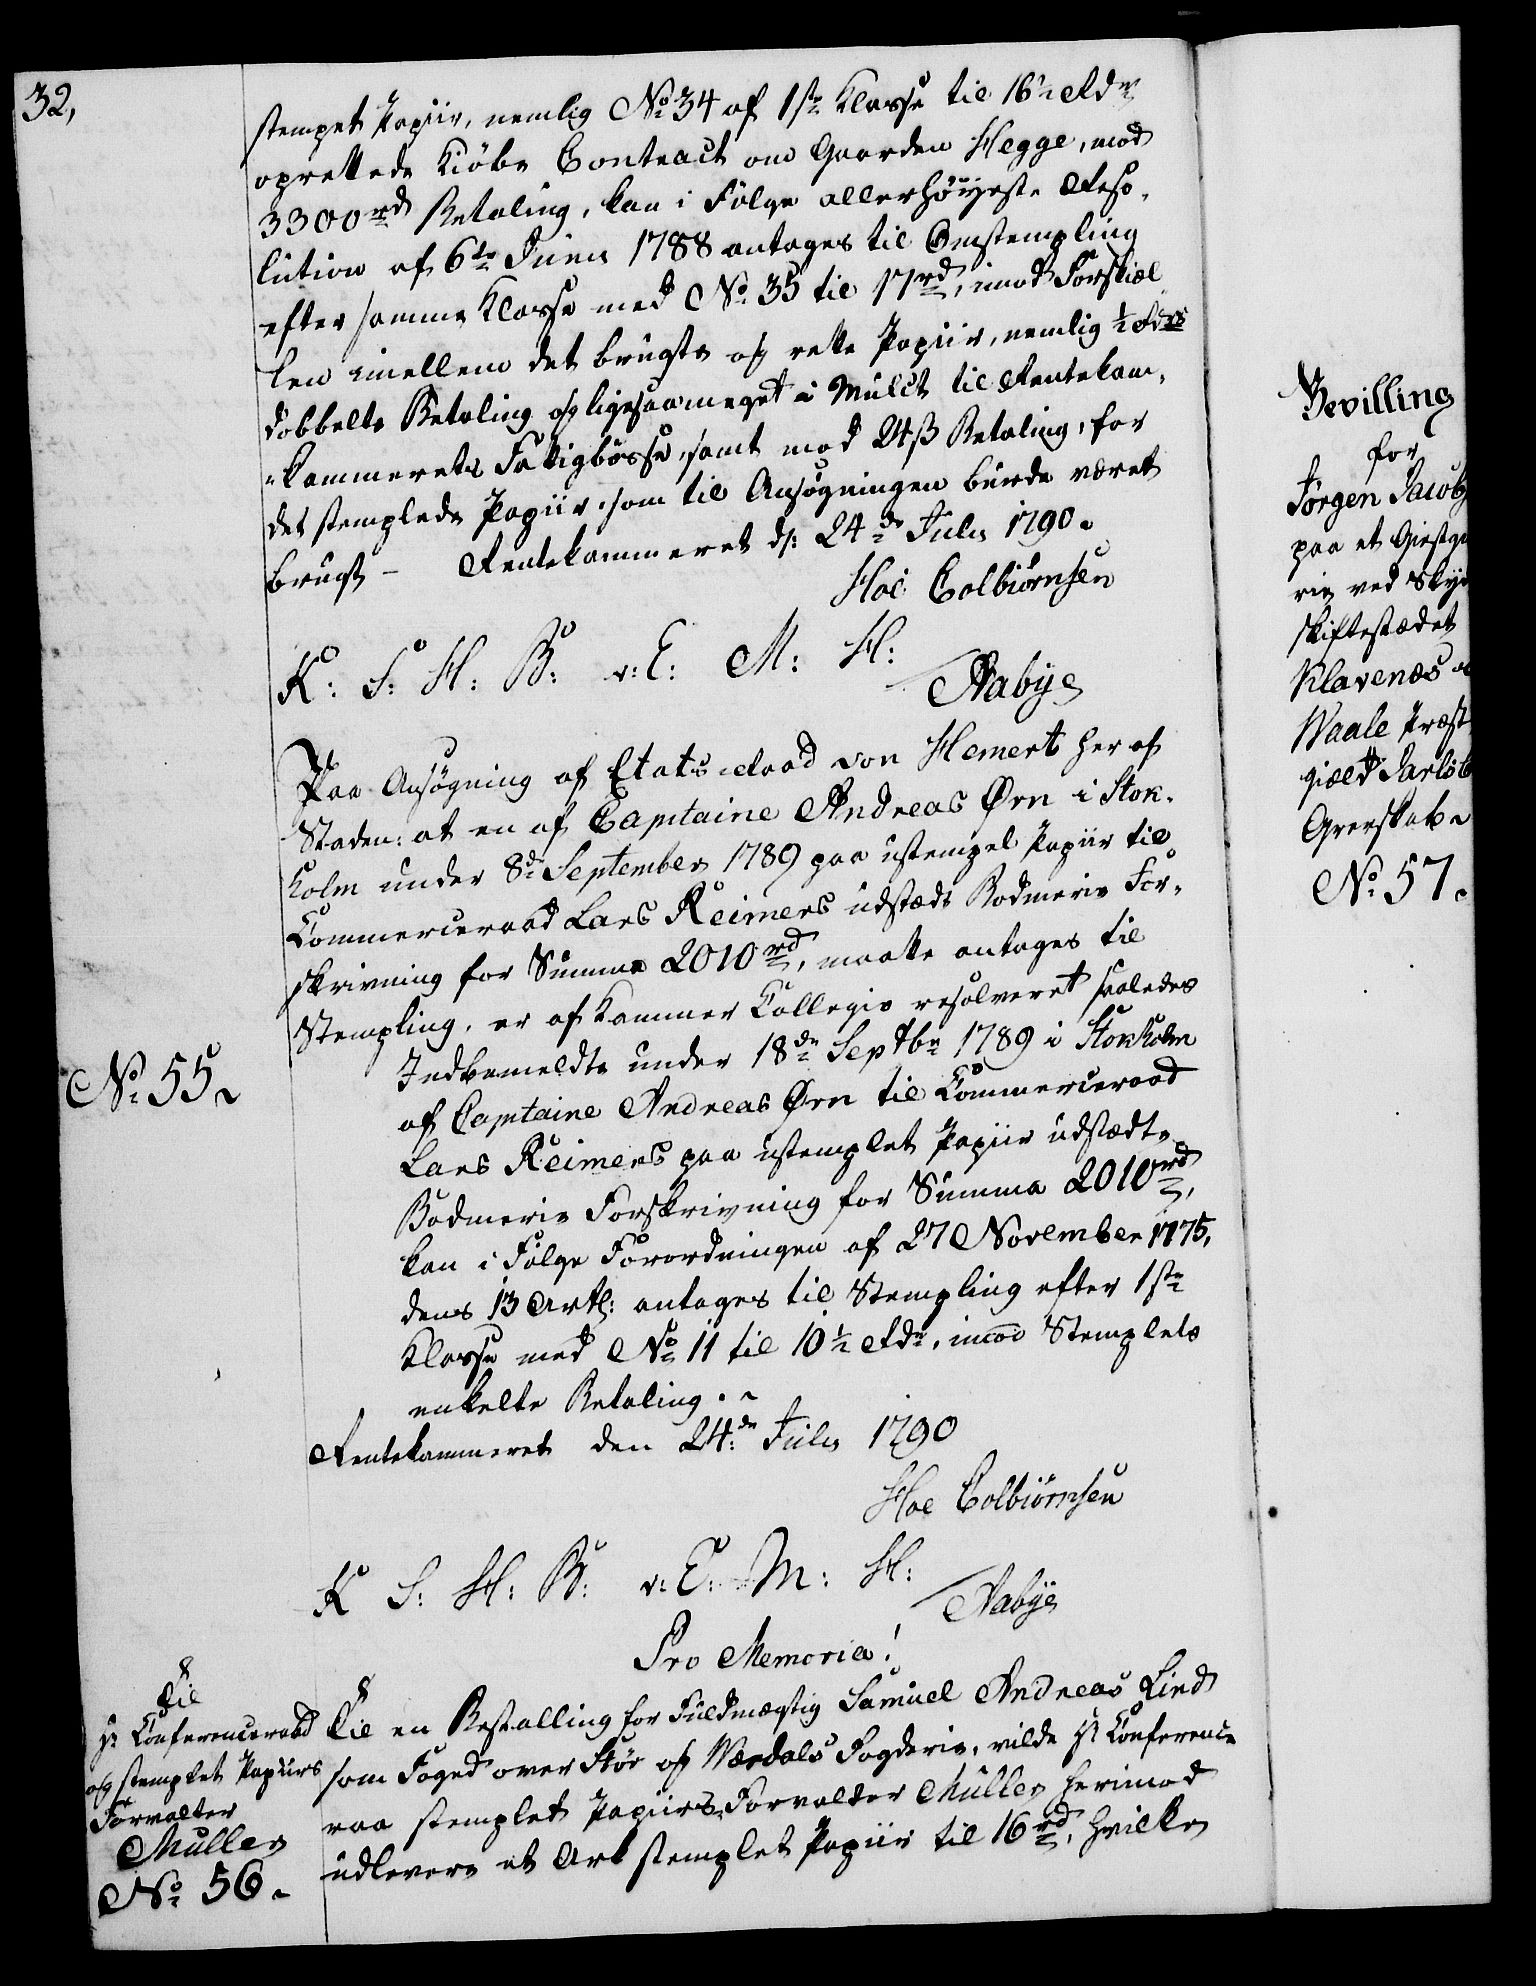 32,
stempet Papiir, nemlig No 34 af 1ste Klasse til 16½ Rdr
oprettede Kiöbe Contract om Gaarden Hegge, mod
3300 rd Betaling, kan i Fölge allerhöyeste Reso-
lution af 6te Junii 1788 antages til Omstempling
efter samme Klasse med No 35 til 17 rd, imod Forskiel
len imellem det brugte og rette Papiir, nemlig ½ Rdrs
dobbelte Betaling og ligesaameget i Mulct til Rentekam-
-kammerets Fattigbösse, samt mod 24 ß Betaling, for
det stemplede Papiir, som til Ansögningen burde været
brugt - Rentekammeret d: 24de Julii 1790.
Hoë Colbiörnsen
K: S: H: B: v: E: M: H:
Aabye
Paa Ansögning af Etats-Raad von Hemert her af
Staden: at en af Captaine Andreas Ørn i Stok-
holm under 8de September 1789 paa ustempel Papiir til
Commerceraad Lars Reimers udstædt Bodmerie For-
skrivning for Summa 2010 rd, maatte antages til
Stempling, er af Kammer Collegio resolveret saaledes
No 55.
Indbemeldte under 18de Septbr 1789 i Stokholm
af Captaine Andreas Ørn til Commerceraad
Lars Reimers paa ustemplet Papiir udstædte
Bodmerie Forskrivning for Summa 2010 rd,
kan i Fölge Forordningen af 27 November 1775,
dens 13 Artl: antages til Stempling efter 1ste
Klasse med No 11 til 10½ Rdr, imod Stemplets
enkelte Betaling.
Rentekammeret den 24de Julii 1790
Hoë Colbiörnsen
K S: H: B: v: E: M: H:
Aabye
Pro Memoria!
Til
Hr Conferenceraad
og stemplet Papiirs
Forvalter
Müller
No 56.
Til en Bestalling for Fuldmægtig Samuel Andreas Lind
som Foged over Stör og Værdals Fogderie, vilde Hr Conference
raa stemplet Papiirs-Forvalter Müller herimod
udlevere et Ark stemplet Papiir til 16 rd, hvilke
Bevilling
for
Jörgen Jacob
paa et Giestge
rie ved Sky
skiftestædet
Klavenæs
Waale Præst
gield Jarlsb
Grevskab
No 57.